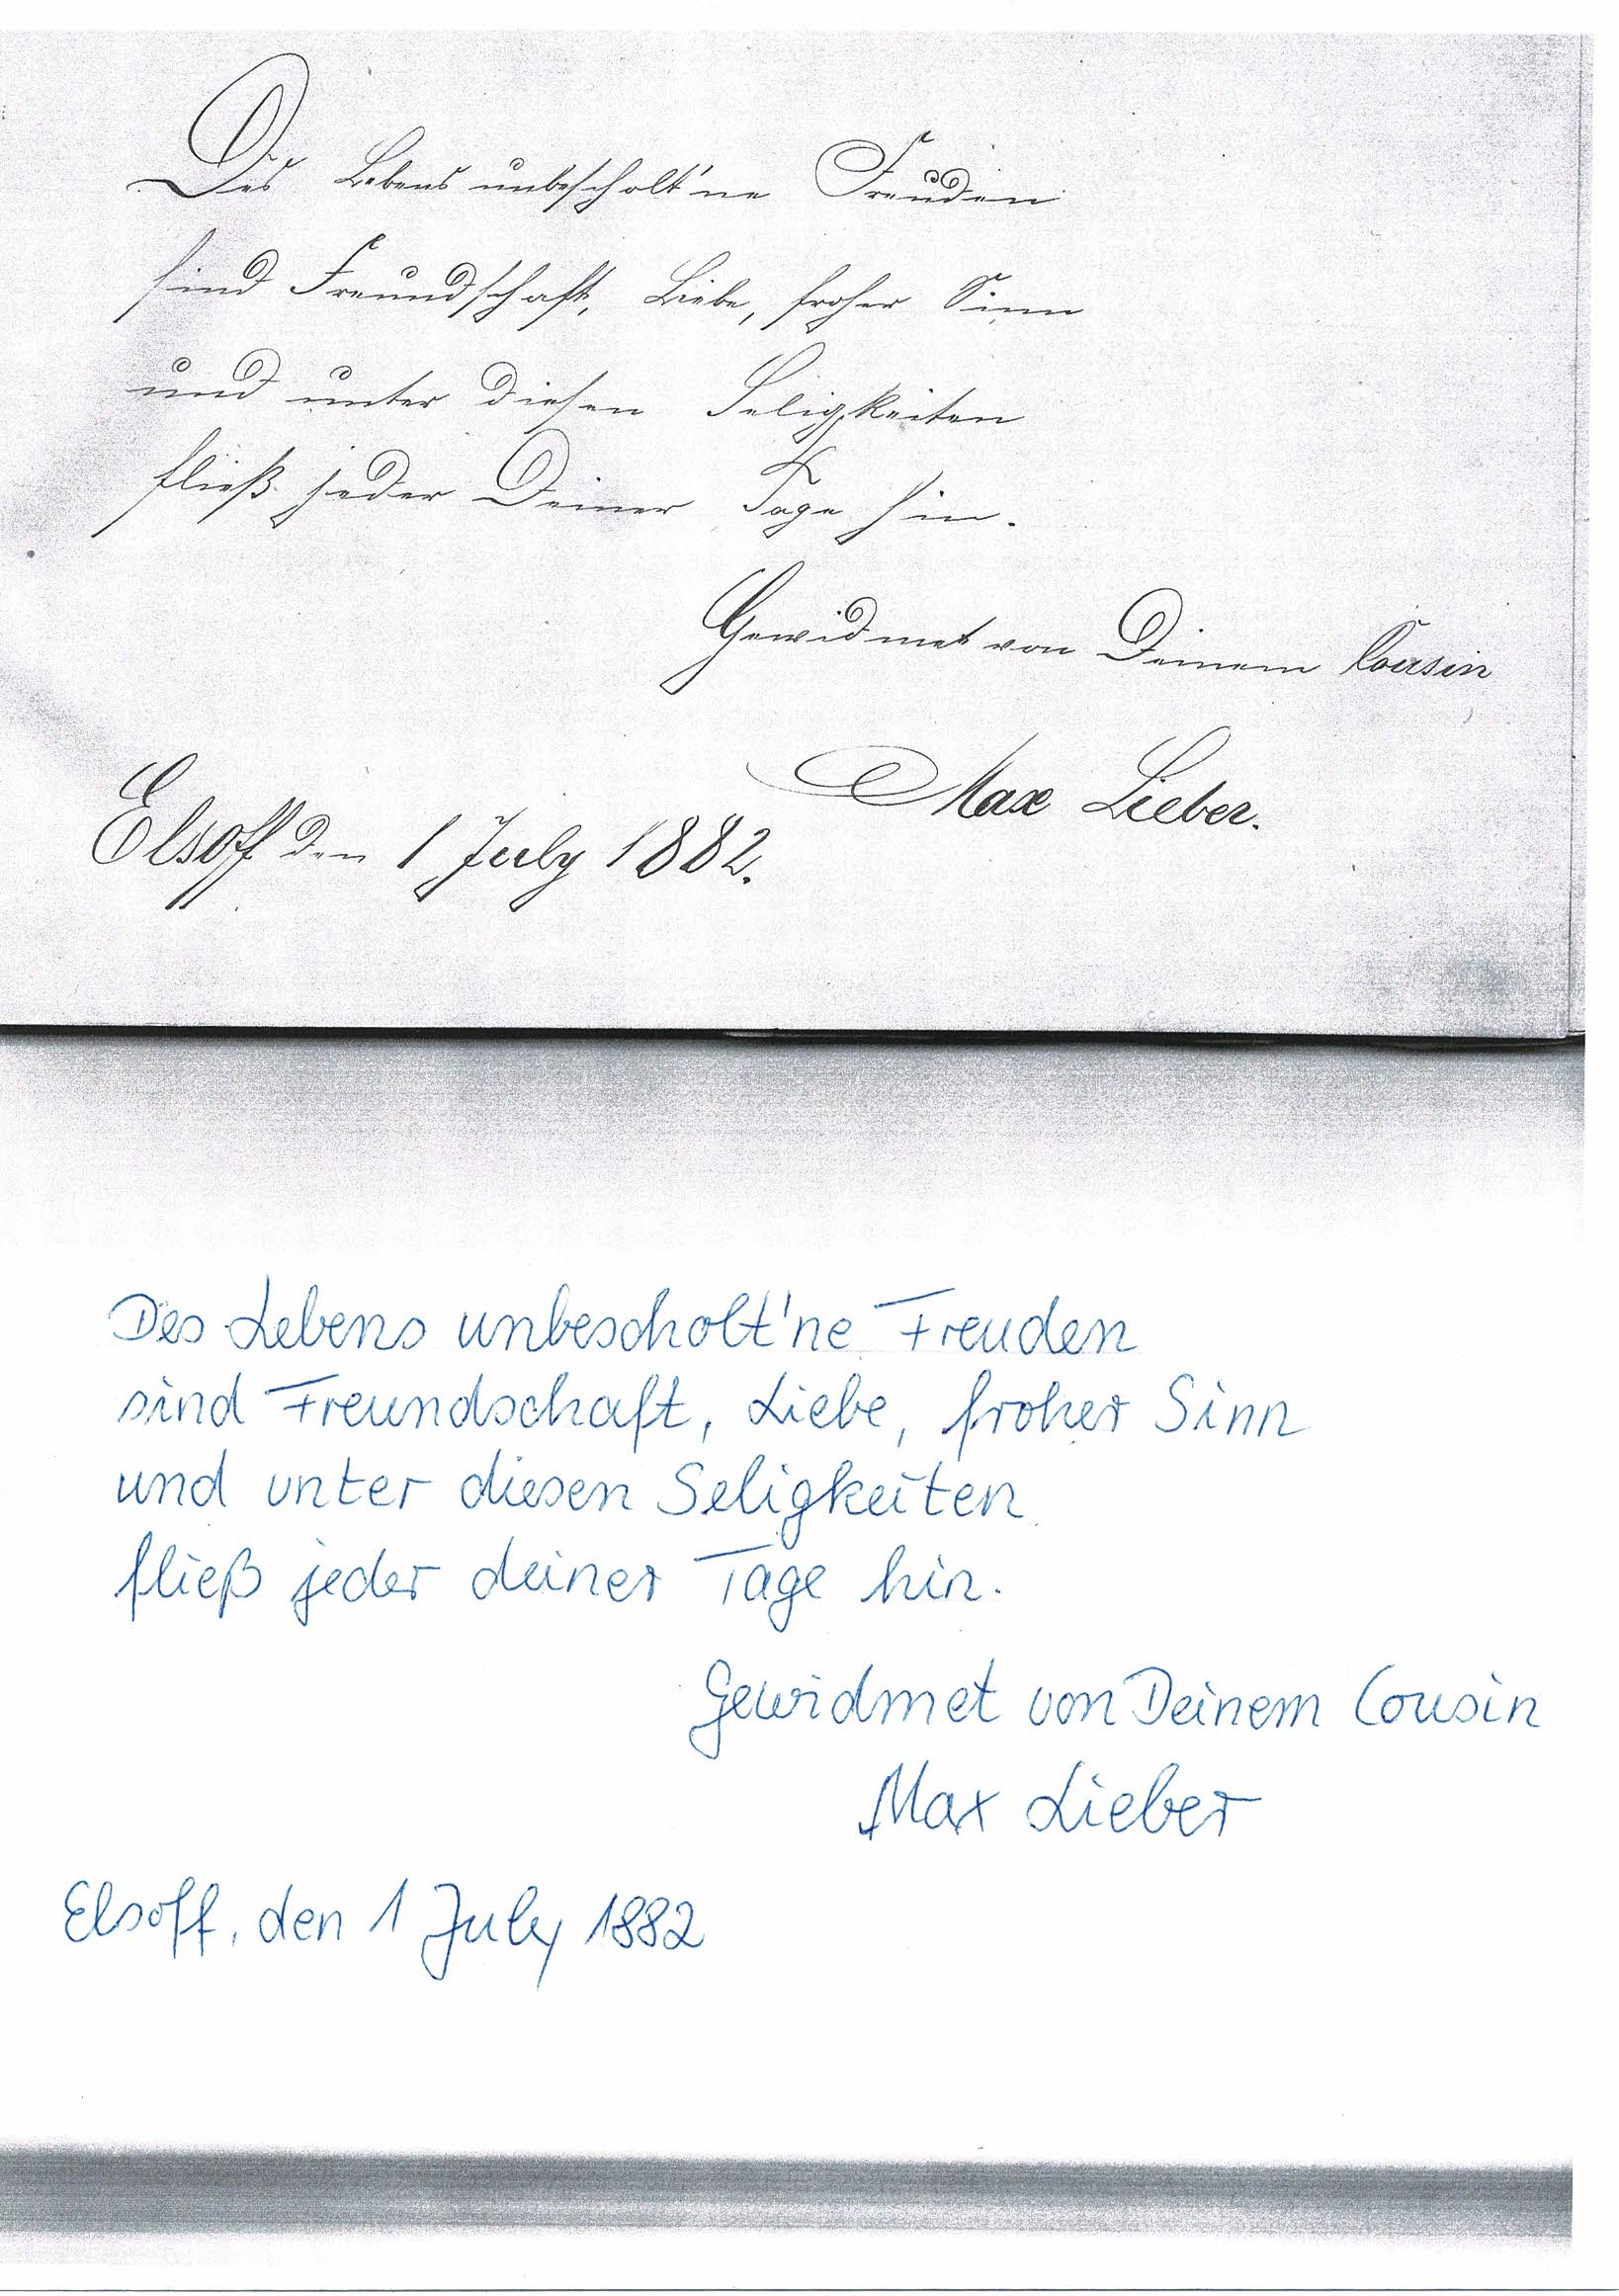 Des Lebens unbescholt'ne Freuden
sind Freundschaft, Liebe, froher Sinn
und unter diesen Seligkeiten
fließ jeder Deiner Tage hin.
Gewidmet von Deinem Cousin
Max Lieber.
Elsoff den 1 July 1882.
Des Lebens unbescholt'ne Freuden
sind Freundschaft, Liebe, froher Sinn
und unter diesen Seligkeiten
fließ jeder deiner Tage hin.
Gewidmet von Deinem Cousin
Max Lieber
Elsoff, den 1 July 1882